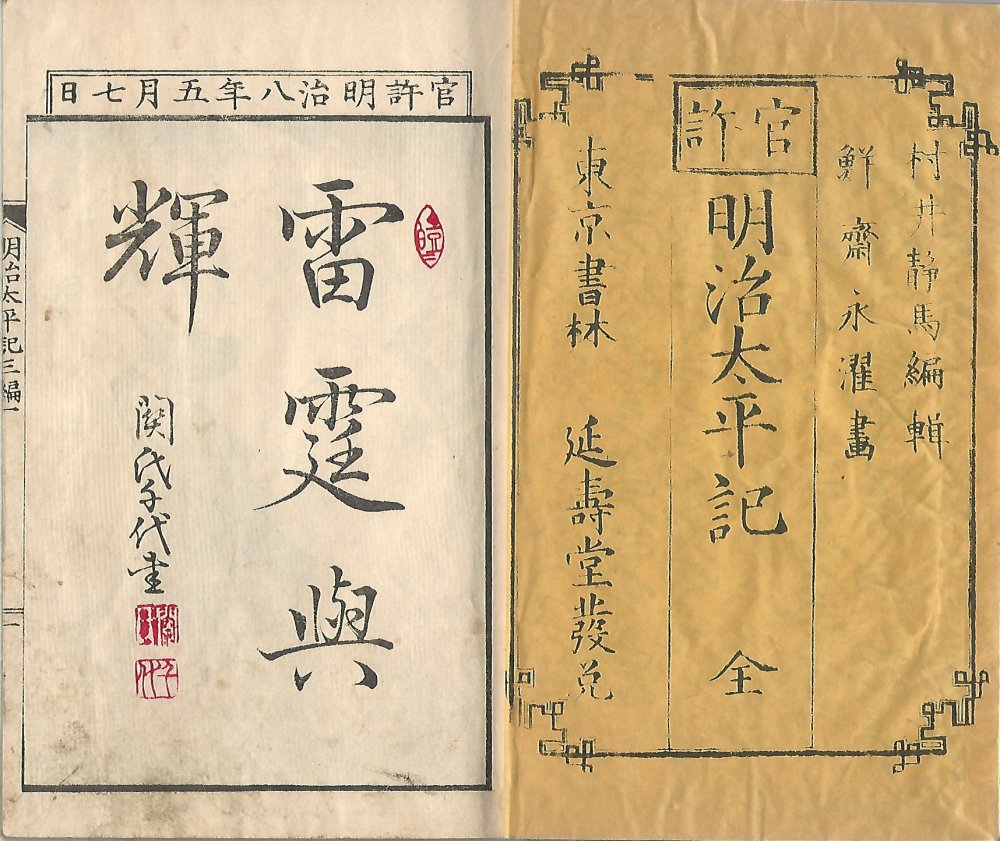 村井静馬編輯
鮮齋永濯畫
官許
明治太平記 全
東京書林 延壽堂發兌
官許明治八年五月七日
雷霆與
輝
関氏子代書
明治太平記三編一
一